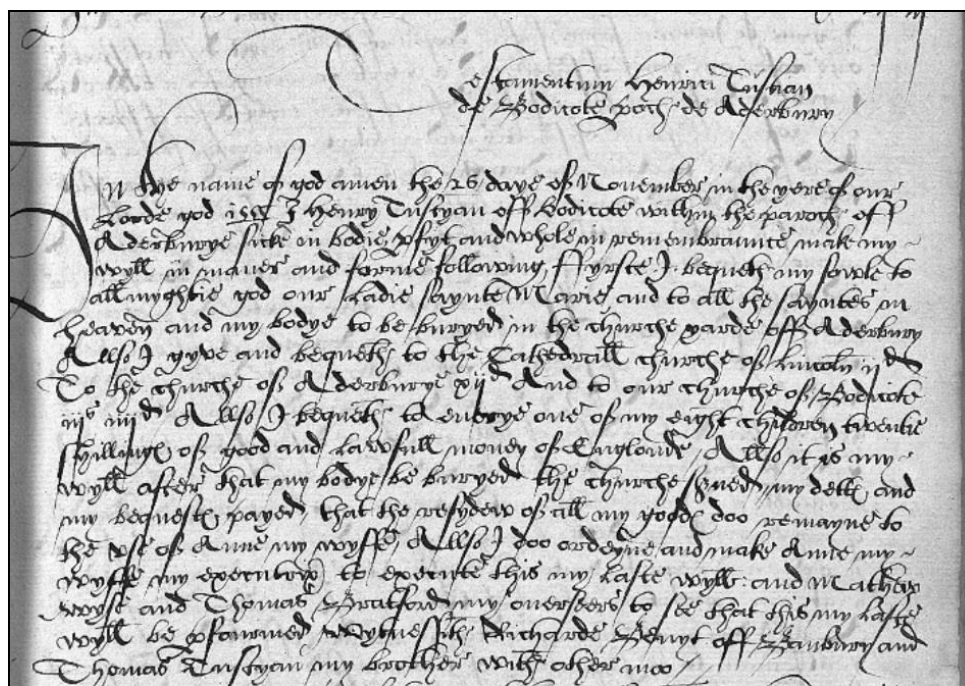 Testamentum Henrici Tustian
de Bodicote poch de Aderbury
In the name of god amen the 26 daye of November in the yere of our
Lorde god I Henry Tustyan off Bodicote within the paroch off
Aderburye sicke in bodie pfyt and whole in remembraunce make my
wyll in maner and forme following ffyrste I bequeth my sowle to
allmyghtie god our Ladie saynte Marie and to all the sayntes in
heaven and my bodye to be buryed in the churche yarde off Aderbury
Allso I gyve and bequeth to the Cathedrall churche of Lincoln iid
To the churche of Aderburye xiid And to our churche of Bodicote
iiis iiiid Allso I bequeth to everye one of my eight children twentie
shillings of good and Lawfull money of Englonde Allso it is my
wyll after that my bodye be buryed the churche sved my detts and
my bequests payed that the resydew of all my goods doo remayne to
the use of Anne my wyffe Allso I doo ordeyne and make Anne my
wyffe my executryx to execute this my Laste wyll and Mathew
Wyse and Thomas Bratford my overseers to see that this my Laste
wyll be pfourmed Wytnessith Richarde off Banbury and
Thomas Tustyan my brother with other moo